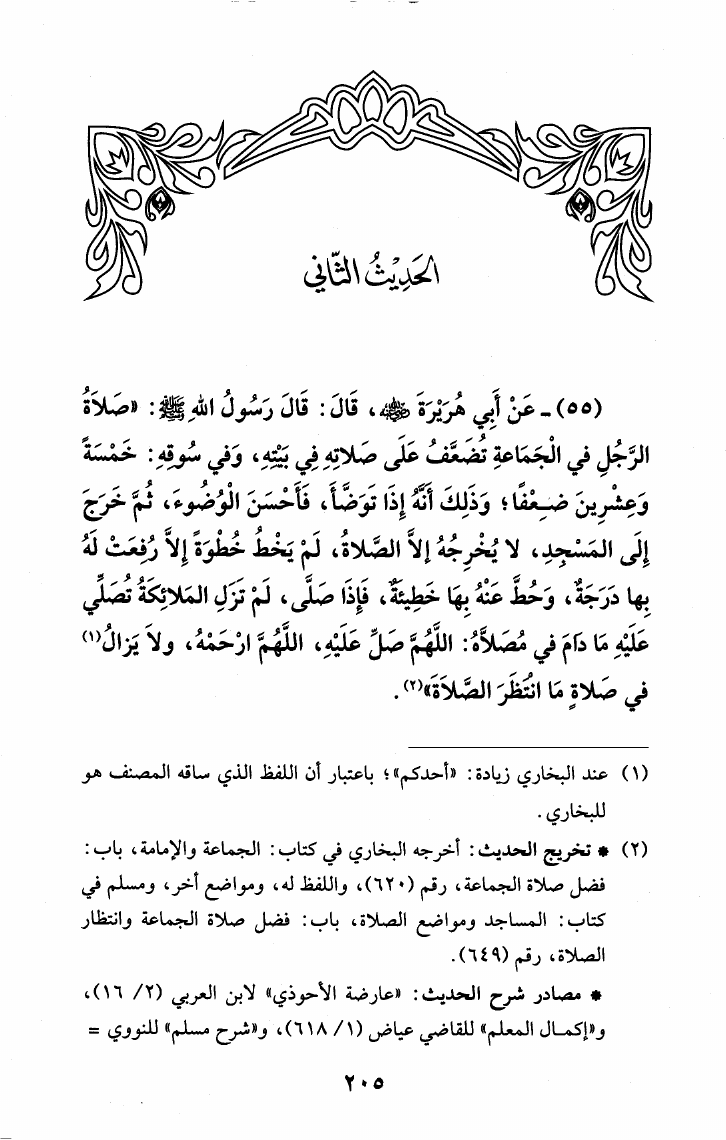 الحَدِيْثُ الثَّانِي
(٥٥) ـ عَنْ أَبِي هُرَيْرَةَ ﷺ، قَالَ: قَالَ رَسُولُ اللهِ ﷺ: «صَلَاةُ
الرَّجُلِ في الْجَمَاعَةِ تُضَعَّفُ عَلَى صَلاتِهِ فِي بَيْتِهِ، وَفي سُوقِهِ: خَمْسَةً
وَعِشْرِينَ ضِعْفًا؛ وَذَلِكَ أَنَّهُ إِذَا تَوَضَّأَ، فَأَحْسَنَ الْوُضُوءَ، ثُمَّ خَرَجَ
إِلَى المَسْجِدِ، لا يُخْرِجُهُ إلاَّ الصَّلاةُ، لَمْ يَخْطُ خُطْوَةً إلاَّ رُفِعَتْ لَهُ
بِها دَرَجَةٌ، وَحُطَّ عَنْهُ بِهَا خَطِيئَةٌ، فَإِذَا صَلَّى، لَمْ تَزَلِ المَلائِكَةُ تُصَلِّي
عَلَيْهِ مَا دَامَ في مُصَلاَّهُ: اللَّهُمَّ صَلِّ عَلَيْهِ، اللَّهُمَّ ارْحَمْهُ، ولاَ يَزالُ(١)
في صَلاةٍ مَا انْتَظَرَ الصَّلاَةَ»(٢).
(١) عند البخاري زيادة: «أحدكم»؛ باعتبار أن اللفظ الذي ساقه المصنف هو
للبخاري.
(٢) * تخريج الحديث: أخرجه البخاري في كتاب: الجماعة والإمامة، باب:
فضل صلاة الجماعة، رقم (٦٢٠)، واللفظ له، ومواضع أخر، ومسلم في
كتاب: المساجد ومواضع الصلاة، باب: فضل صلاة الجماعة وانتظار
الصلاة، رقم (٦٤٩).
* مصادر شرح الحديث: «عارضة الأحوذي» لابن العربي (٢/ ١٦)،
و«إكمال المعلم» للقاضي عياض (١/ ٦١٨)، و«شرح مسلم» للنووي =
٢٠٥